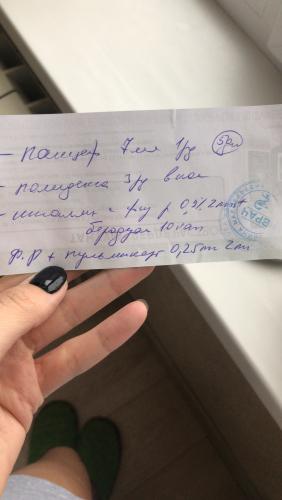 - Панцеф 7 мл 1 р/д 5 дн
- полидекса 3 р/д в нос
- ингаляции с физ р 0,9% 2 мл +
беродуал 10 кап
Ф.Р + пульмикорт 0,25 мл 2 мл
ВРАЧ